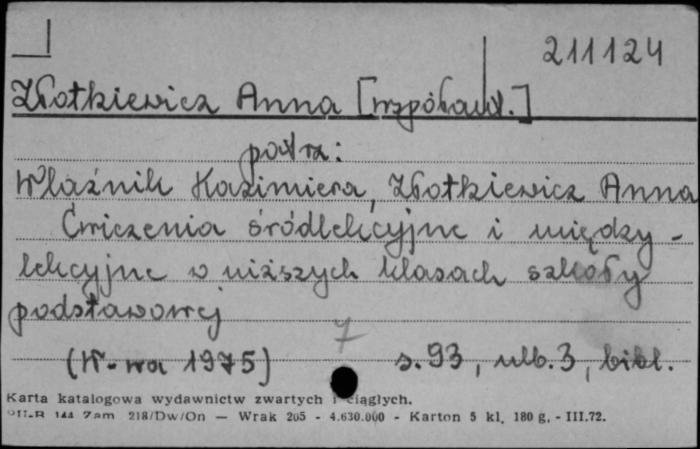 211124
Złotkiewicz Anna [współaut.]
patrz:
Właźnik Kazimiera, Złotkiewicz Anna
Ćwiczenia śródlekcyjne i między-
lekcyjne w niższych klasach szkoły
podstawowej
7
(W-wa 1975) s. 93, nlb. 3, bibl.
Karta katalogowa wydawnictw zwartych i ciągłych.
144 Zam 218/Dw/On — Wrak 205 - 4.630.000 - Karton 5 kl. 180 g. - III.72.